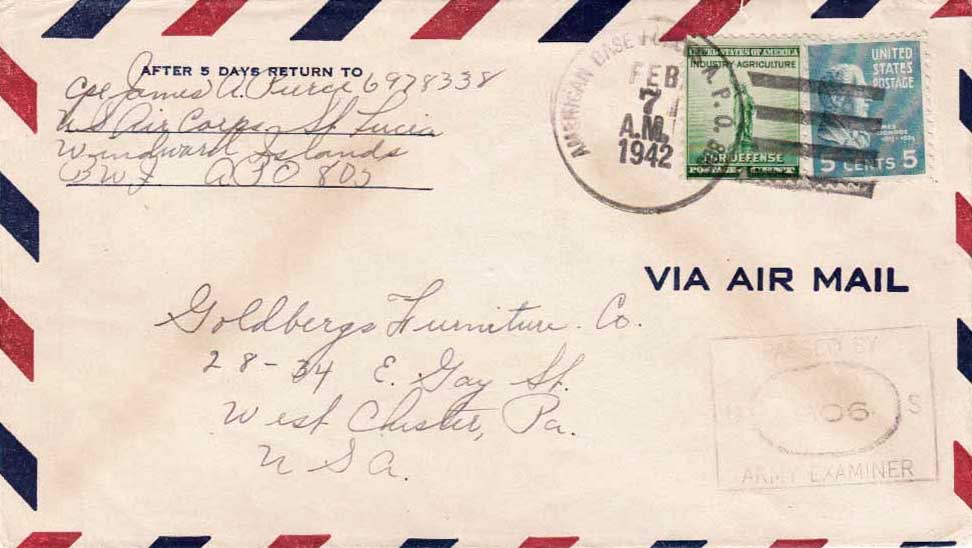 AFTER 5 DAYS RETURN TO
Cpl James A. Pierce 6978338
U S Air Corps, St Lucia
Windward Islands
BWI APO 805
AMERICAN BASE A.P.O.
FEB
7
A.M.
1942
UNITED STATES OF AMERICA
INDUSTRY AGRICULTURE
FOR DEFENSE
POSTAGE 1 CENT
UNITED
STATES
POSTAGE
5 CENTS 5
VIA AIR MAIL
Goldbergs Furniture Co.
28-34 E. Gay St.
West Chester, Pa.
U S A.
PASSED BY
906 S
ARMY EXAMINER